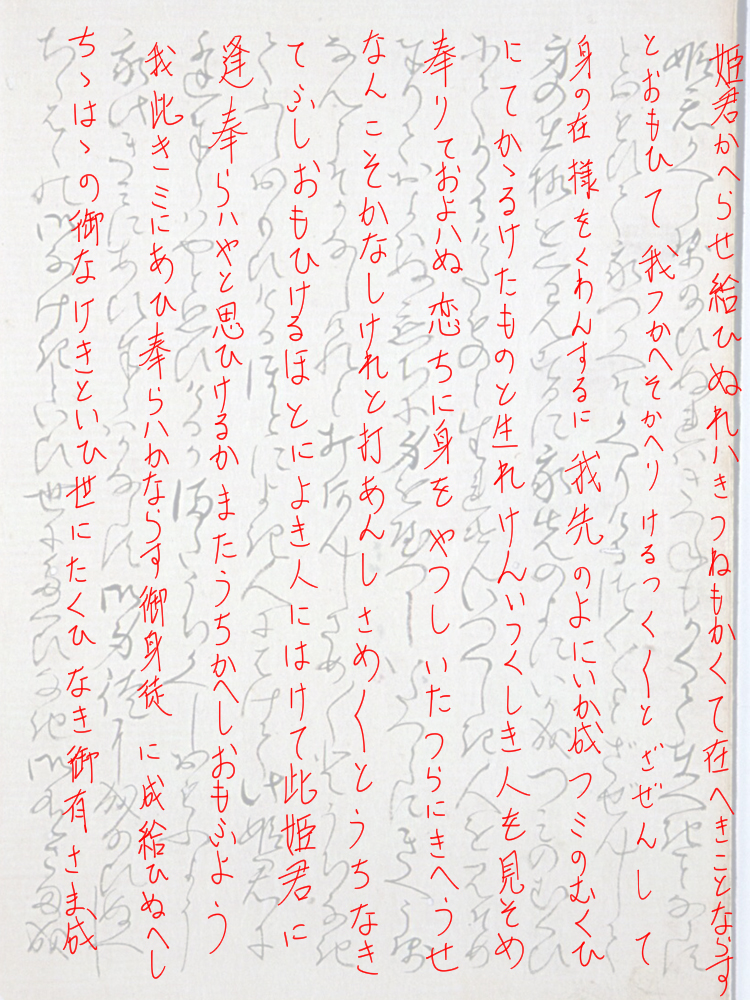 姫君かへらせ給ひぬれハきつねもかくて在へきことならす
とおもひて我つかへそかへりけるつく〱とざぜんして
身の在様をくわんするに我先のよにいか成つミのむくひ
にてかゝるけたものと生れけんいつくしき人を見そめ
奉りておよハぬ恋ちに身をやつしいたつらにきへうせ
なんこそかなしけれと打あんしさめ〱とうちなき
てふしおもひけるほとによき人にはけて此姫君に
逢奉らハやと思ひけるかまたうちかへしおもふよう
我此きミにあひ奉らハかならす御身徒に成給ひぬへし
ちゝはゝの御なけきといひ世にたくひなき御有さま成